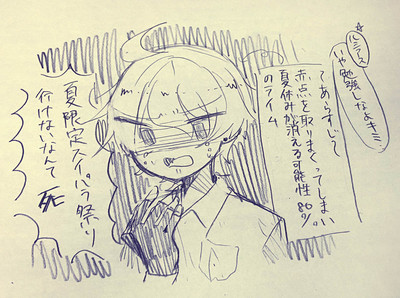 ルミナス
いや勉強しなよキミ
てあらすじて
赤点を取りまくってしまい
夏休みが消える可能性80%
のライム
夏限定スイパラ祭り
行けないなんて 死